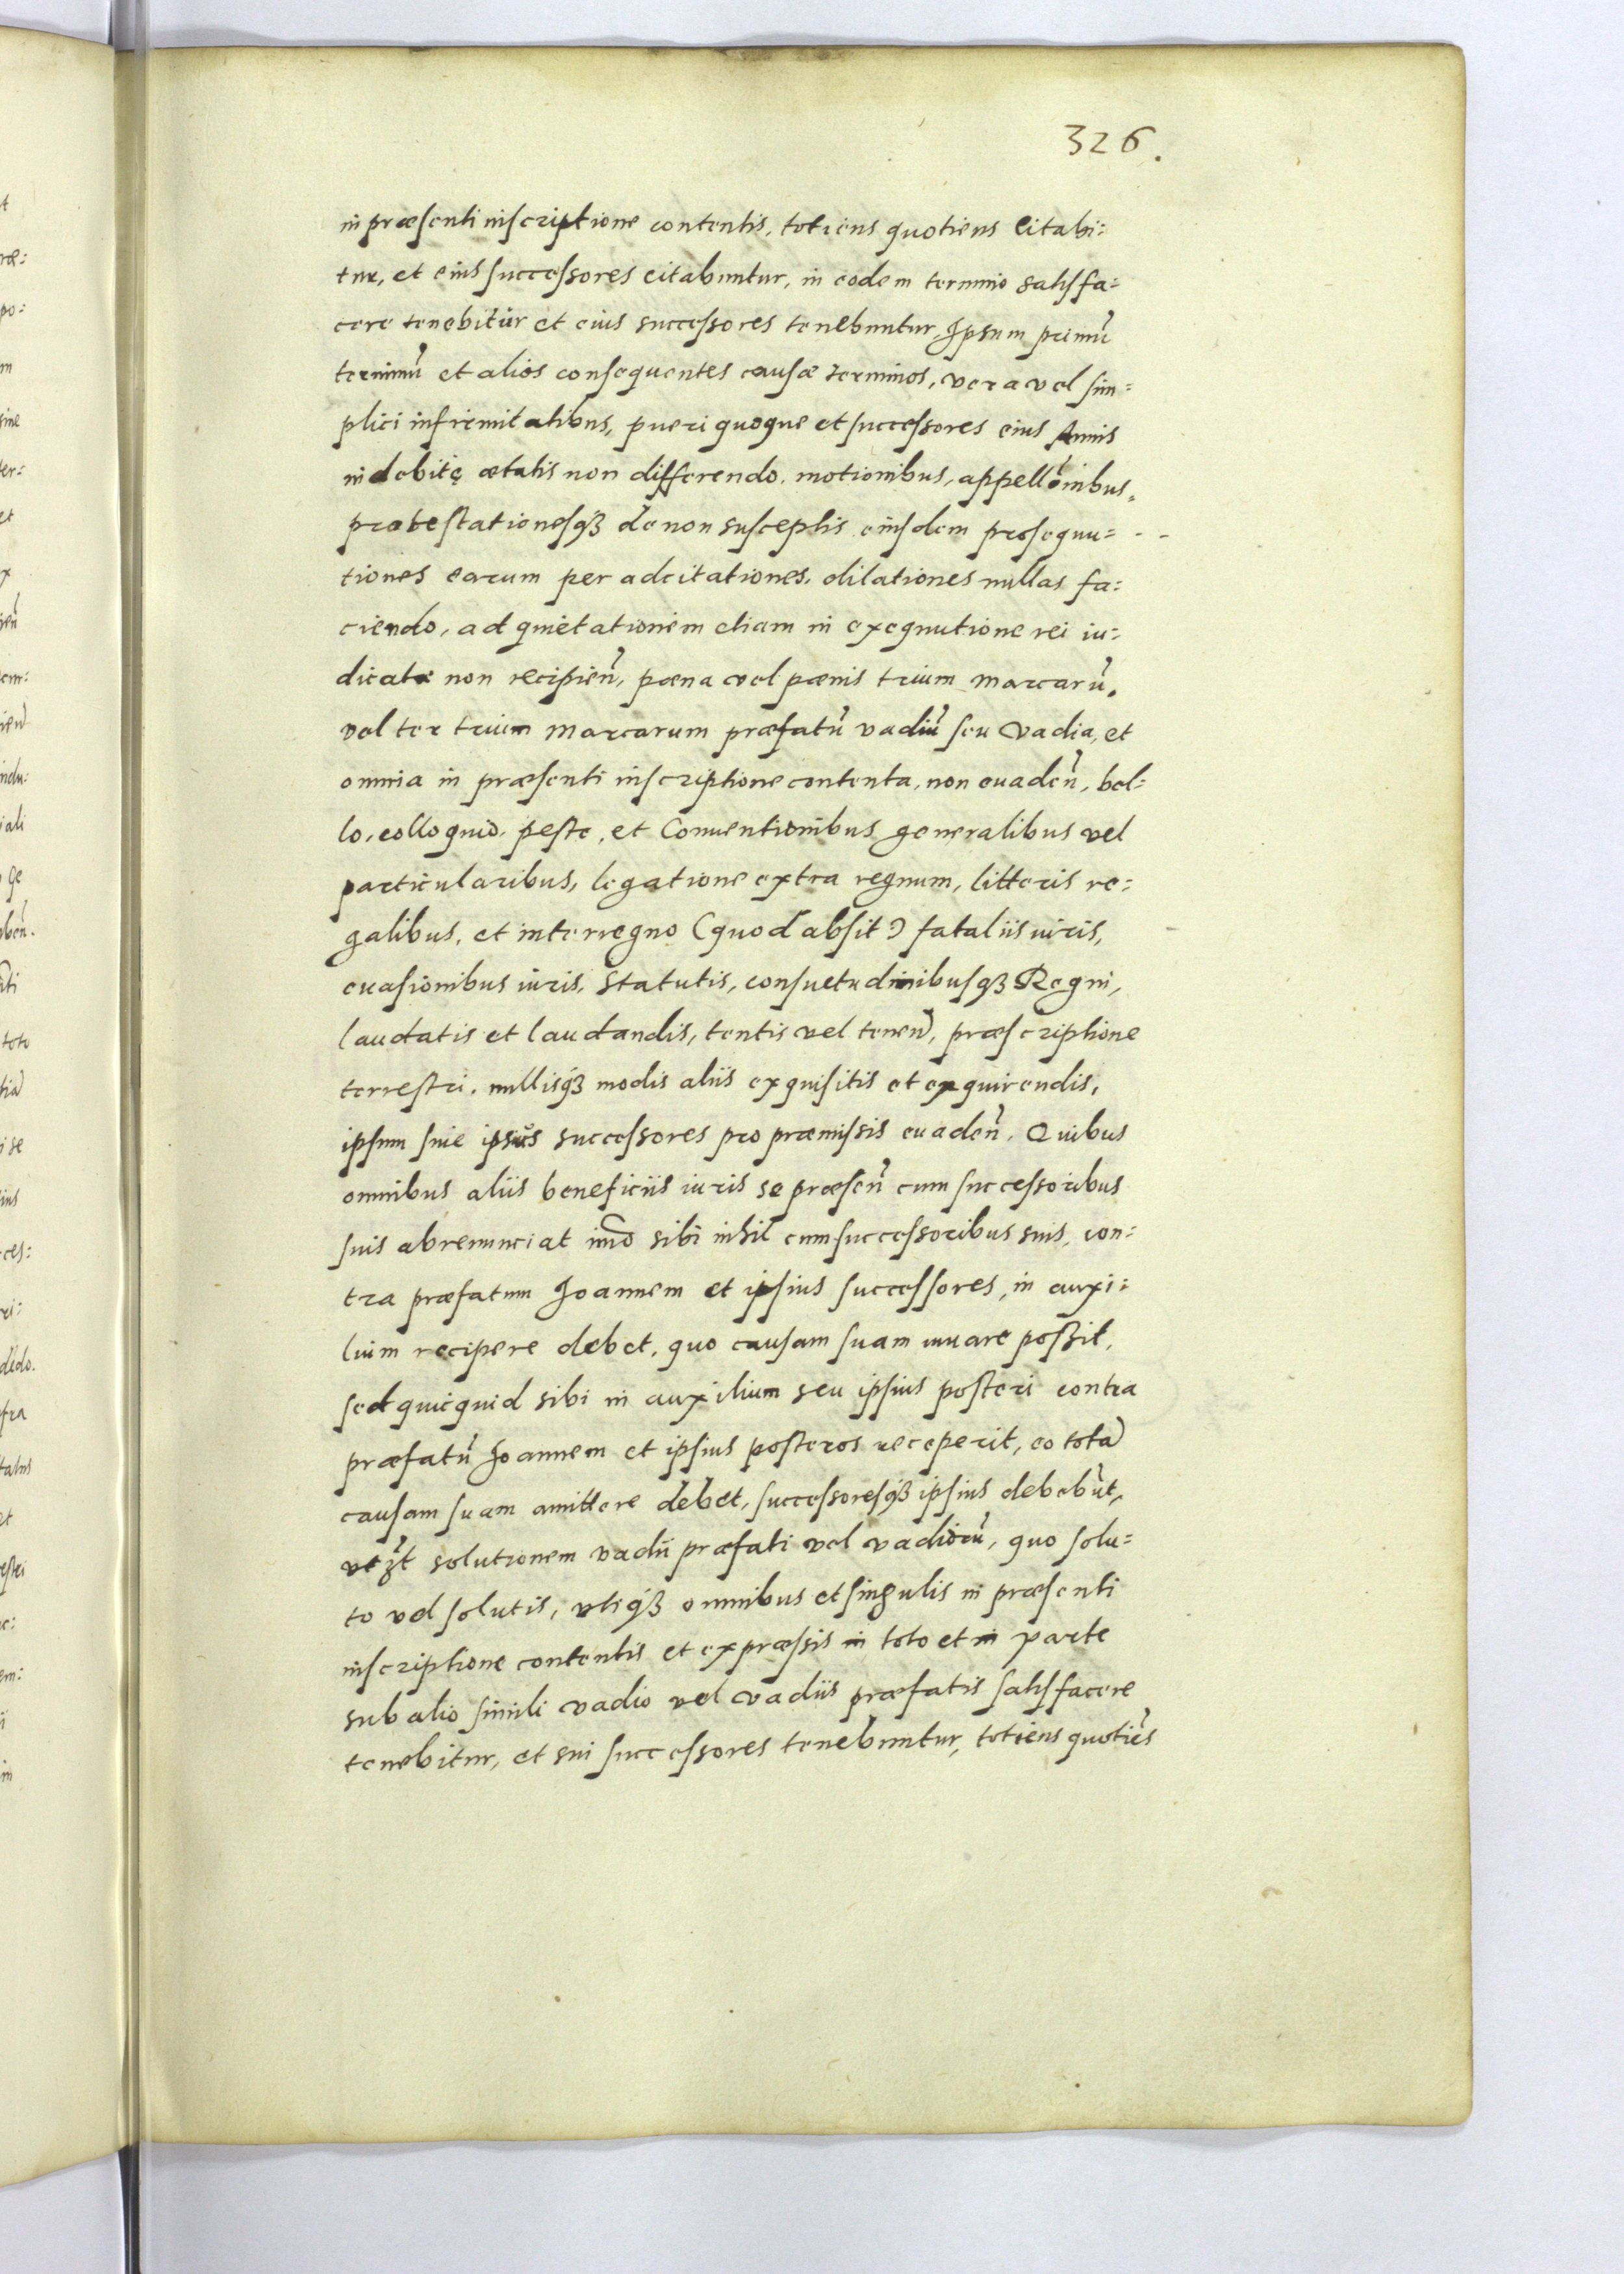 326.
in præsenti inscriptione contentis, totiens quotiens citabi:
tur, et eius successores citabuntur, in eodem termino satisfa:
cere tenebitur et eius successores tenebuntur, Ipsum primũ
terminũ et alios consequentes causæ terminos, vera vel sim:
plici infirmitatibus, pueri quoque et successores eius Annis
indebitę ætatis non differendo. motionibus, appellõnibus,
protestationesqꝫ de non susceptis eiusdem prosequu:
tiones earum per adcitationes, dilationes nullas fa:
ciendo, ad quietationem etiam in exequutione rei iu:
dicatæ non recipieñ, pæna vel pænis trium marcarũ,
vel ter trium marcarum præfatũ vadiũ seu vadia, et
omnia in præsenti inscriptione contenta, non euadeñ, bel:
lo, colloquio, peste, et Conuentionibus generalibus vel
particularibus, legatione extra regnum, litteris re:
galibus, et interregno (quod absit) fataliis iuris,
euasionibus iuris, Statutis, consuetudinibusqꝫ Regni,
laudatis et laudandis, tentis vel tenend, præscriptione
terrestri, nullisqꝫ modis aliis exquisitis et exquirendis,
ipsum siue ipsius successores pro præmissis euadeñ, Quibus
omnibus aliis beneficiis iuris se præseñ cum successoribus
suis abrenunciat imo sibi nihil cum successoribus suis, con:
tra præfatum Joannem et ipsius successores, in auxi:
lium recipere debet, quo causam suam iuuare possit,
sed quicquid sibi in auxilium seu ipsius posteri contra
præfatũ Joannem et ipsius posteros receperit, eo totã
causam suam amittere debet, successoresqꝫ ipsius debebũt,
solutionem vadii præfati vel vadiorũ, quo solu:
to vel solutis, vtiqꝫ omnibus et singulis in præsenti
inscriptione contentis et expræssis in toto et in parte
sub alio simili vadio vel vadiis præfatis satisfacere
tenebitur, et sui successores tenebuntur, totiens quotiẽs